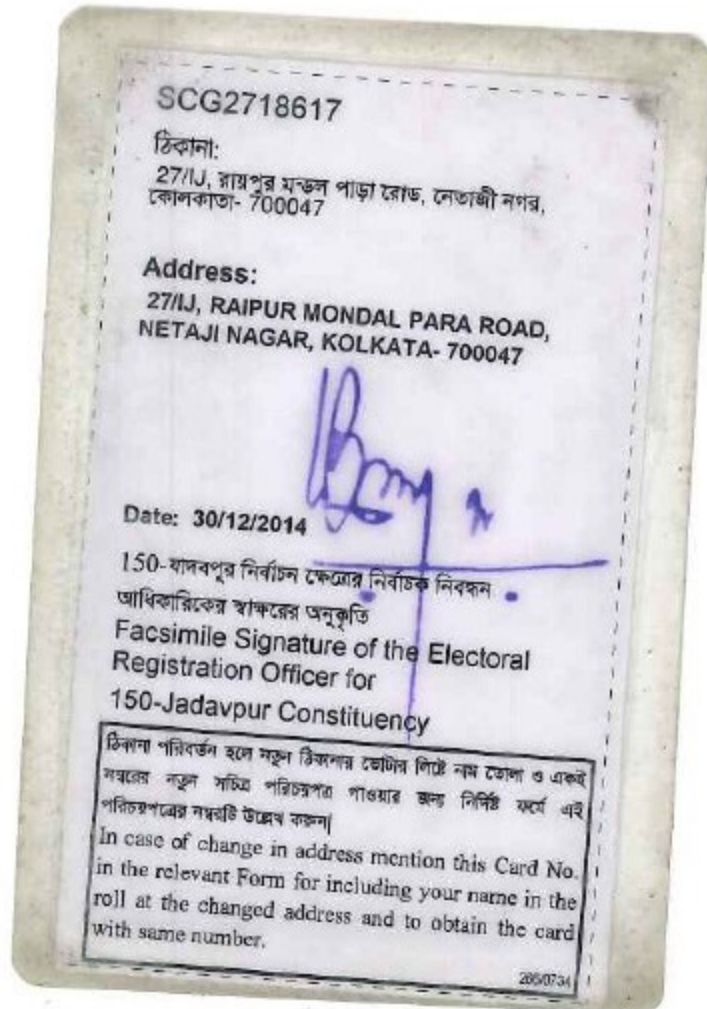 SCG2718617
ঠিকানা:
27/IJ, রায়পুর মন্ডল পাড়া রোড, নেতাজী নগর,
কোলকাতা- 700047
Address:
27/IJ, RAIPUR MONDAL PARA ROAD,
NETAJI NAGAR, KOLKATA- 700047
Date: 30/12/2014
150-যাদবপুর নির্বাচন ক্ষেত্রের নির্বাচক নিবন্ধন
আধিকারিকের স্বাক্ষরের অনুকৃতি
Facsimile Signature of the Electoral
Registration Officer for
150-Jadavpur Constituency
ঠিকানা পরিবর্তন হলে নতুন ঠিকানার ভোটার লিষ্টে নাম তোলা ও একই
নম্বরের নতুন সচিত্র পরিচয়পত্র পাওয়ার জন্য নির্দিষ্ট ফর্মে এই
পরিচয়পত্রের নম্বরটি উল্লেখ করুন|
In case of change in address mention this Card No.
in the relevant Form for including your name in the
roll at the changed address and to obtain the card
with same number.
266/0734